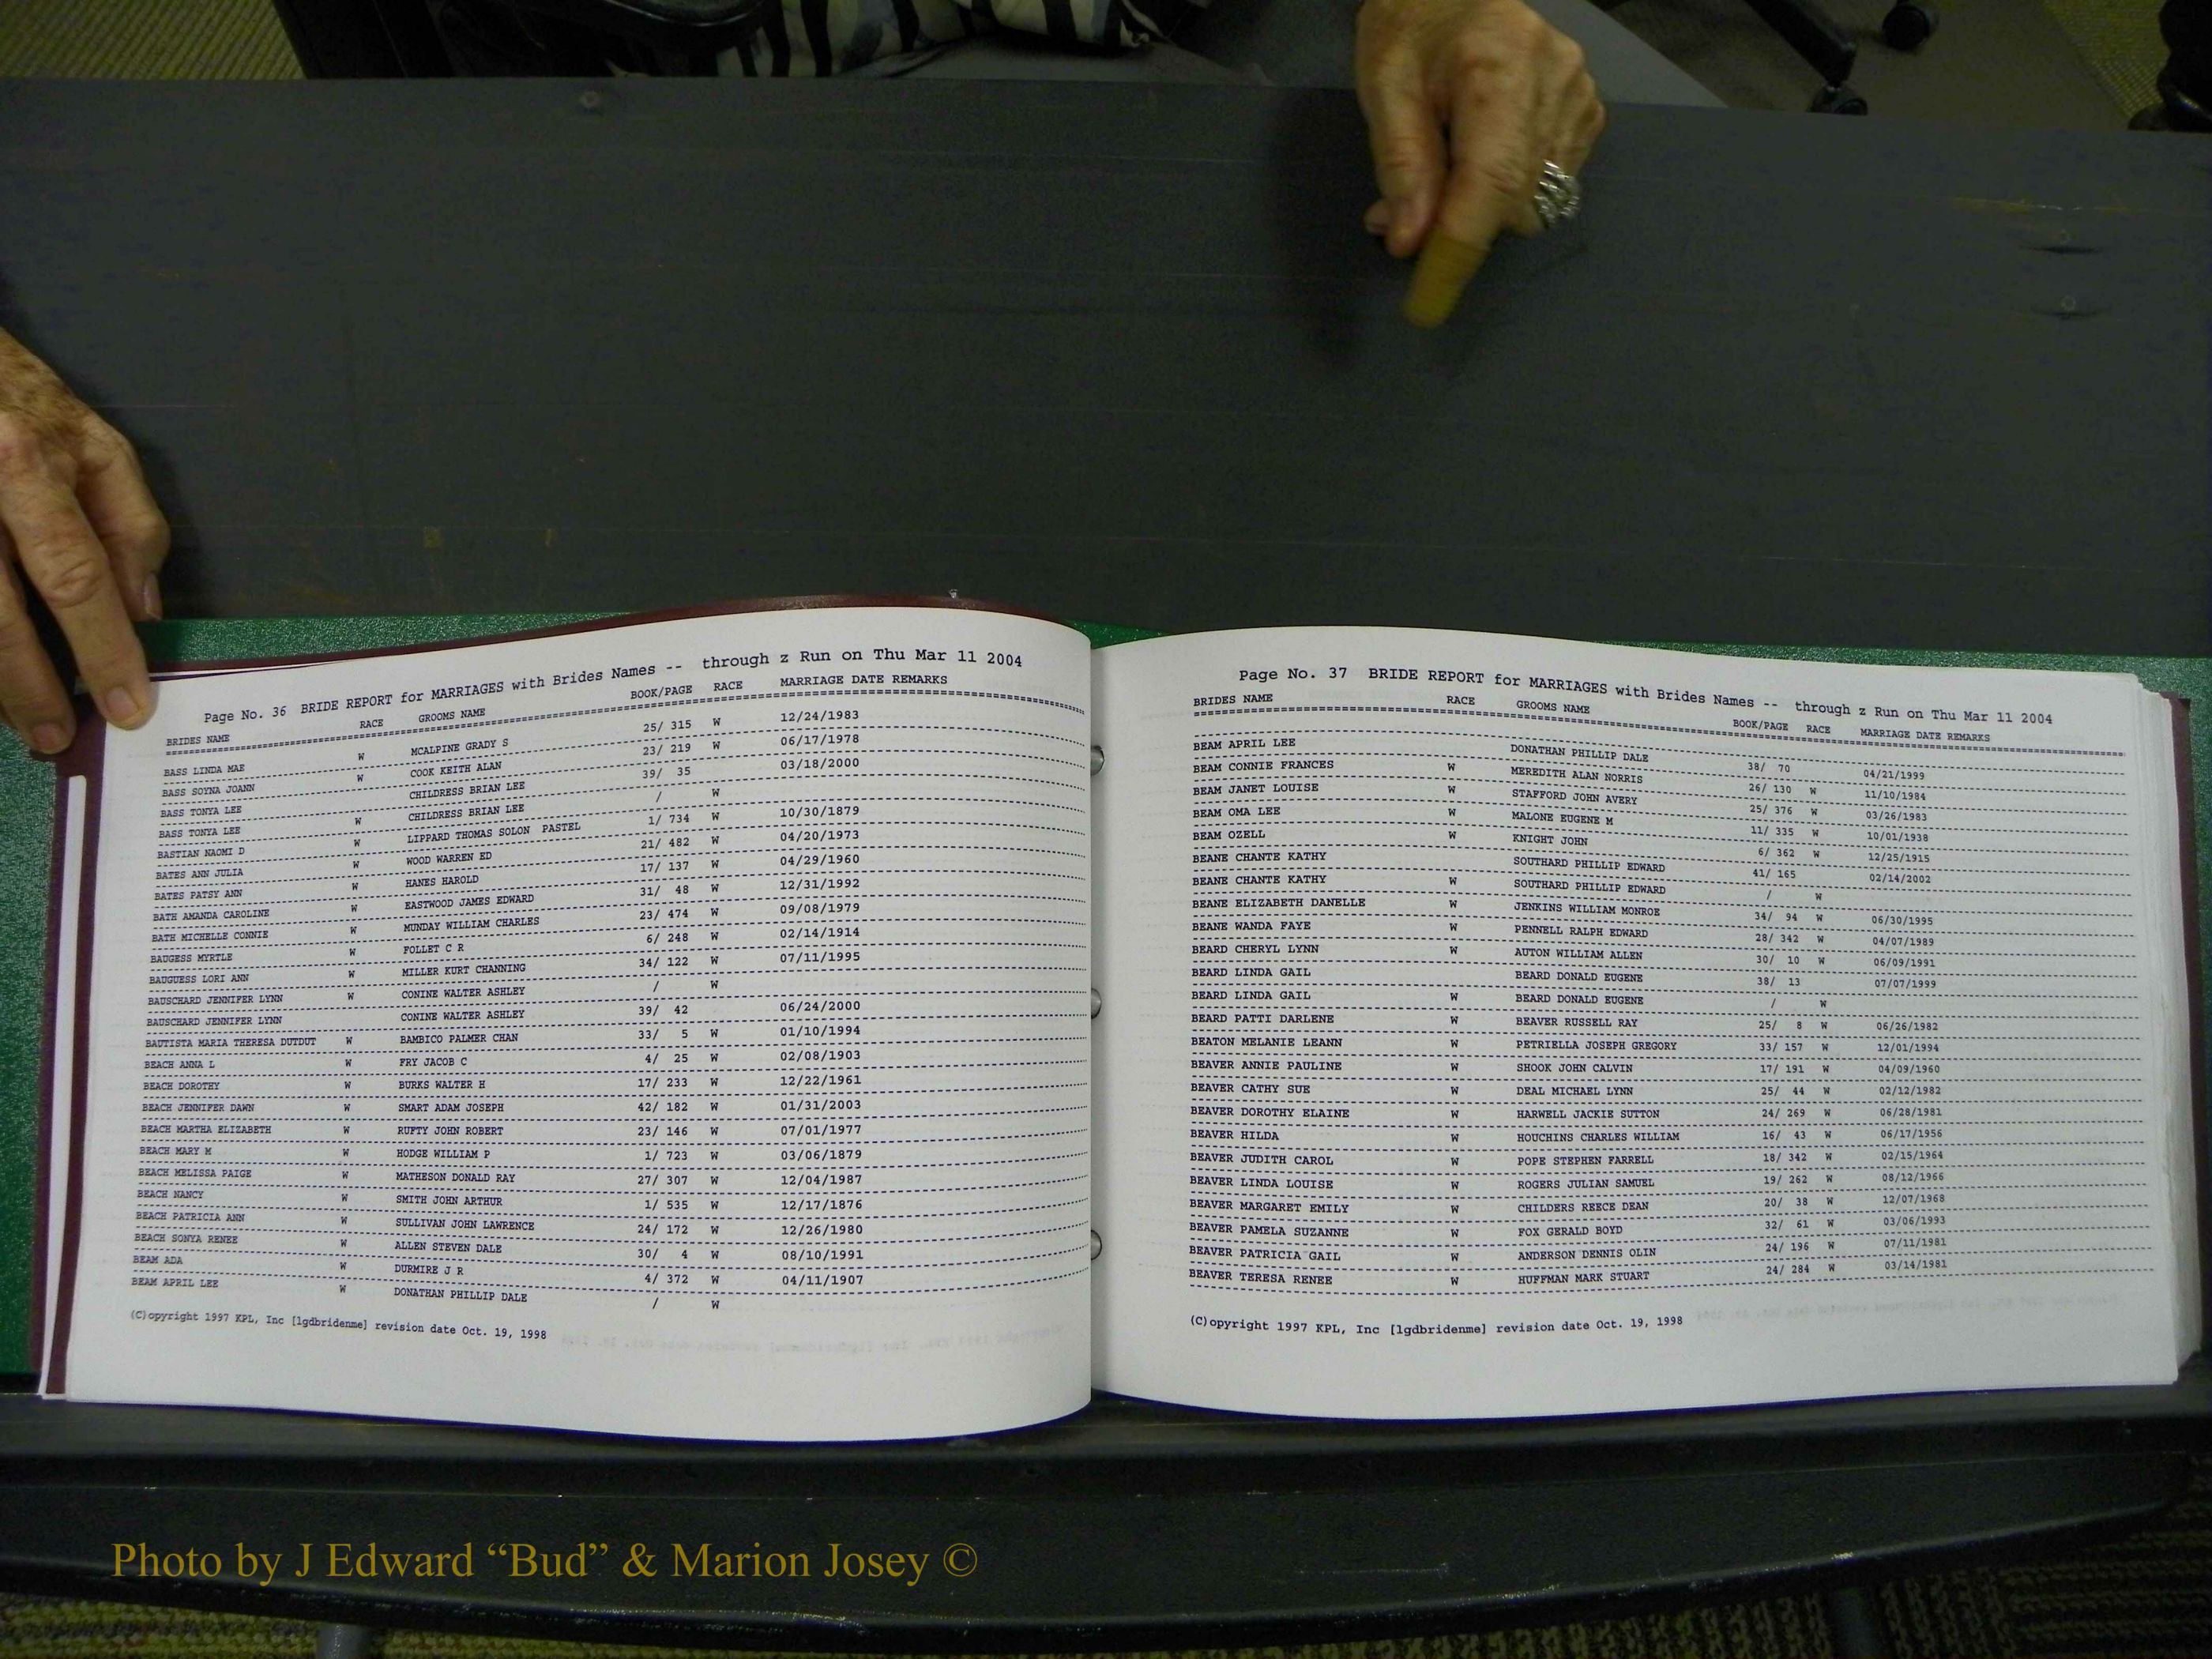 Page No. 36 BRIDE REPORT for MARRIAGES with Brides Names -- through z Run on Thu Mar 11 2004
BRIDES NAME RACE GROOMS NAME BOOK/PAGE RACE MARRIAGE DATE REMARKS
BASS LINDA MAE W MCALPINE GRADY S 25/ 315 W 12/24/1983
BASS SOYNA JOANN W COOK KEITH ALAN 23/ 219 W 06/17/1978
BASS TONYA LEE CHILDRESS BRIAN LEE 39/ 35 03/18/2000
BASS TONYA LEE W CHILDRESS BRIAN LEE / W
BASTIAN NAOMI D W LIPPARD THOMAS SOLON PASTEL 1/ 734 W 10/30/1879
BATES ANN JULIA W WOOD WARREN ED 21/ 482 W 04/20/1973
BATES PATSY ANN W HANES HAROLD 17/ 137 W 04/29/1960
BATH AMANDA CAROLINE W EASTWOOD JAMES EDWARD 31/ 48 W 12/31/1992
BATH MICHELLE CONNIE W MUNDAY WILLIAM CHARLES 23/ 474 W 09/08/1979
BAUGESS MYRTLE W FOLLET C R 6/ 248 W 02/14/1914
BAUGUESS LORI ANN W MILLER KURT CHANNING 34/ 122 W 07/11/1995
BAUSCHARD JENNIFER LYNN W CONINE WALTER ASHLEY / W
BAUSCHARD JENNIFER LYNN CONINE WALTER ASHLEY 39/ 42 06/24/2000
BAUTISTA MARIA THERESA DUTDUT W BAMBICO PALMER CHAN 33/ 5 W 01/10/1994
BEACH ANNA L W FRY JACOB C 4/ 25 W 02/08/1903
BEACH DOROTHY W BURKS WALTER H 17/ 233 W 12/22/1961
BEACH JENNIFER DAWN W SMART ADAM JOSEPH 42/ 182 W 01/31/2003
BEACH MARTHA ELIZABETH W RUFTY JOHN ROBERT 23/ 146 W 07/01/1977
BEACH MARY M W HODGE WILLIAM P 1/ 723 W 03/06/1879
BEACH MELISSA PAIGE W MATHESON DONALD RAY 27/ 307 W 12/04/1987
BEACH NANCY W SMITH JOHN ARTHUR 1/ 535 W 12/17/1876
BEACH PATRICIA ANN W SULLIVAN JOHN LAWRENCE 24/ 172 W 12/26/1980
BEACH SONYA RENEE W ALLEN STEVEN DALE 30/ 4 W 08/10/1991
BEAM ADA W DURMIRE J R 4/ 372 W 04/11/1907
BEAM APRIL LEE W DONATHAN PHILLIP DALE / W
(C)opyright 1997 KPL, Inc [lgdbridenme] revision date Oct. 19, 1998
Page No. 37 BRIDE REPORT for MARRIAGES with Brides Names -- through z Run on Thu Mar 11 2004
BRIDES NAME RACE GROOMS NAME BOOK/PAGE RACE MARRIAGE DATE REMARKS
BEAM APRIL LEE DONATHAN PHILLIP DALE 38/ 70 04/21/1999
BEAM CONNIE FRANCES W MEREDITH ALAN NORRIS 26/ 130 W 11/10/1984
BEAM JANET LOUISE W STAFFORD JOHN AVERY 25/ 376 W 03/26/1983
BEAM OMA LEE W MALONE EUGENE M 11/ 335 W 10/01/1938
BEAM OZELL W KNIGHT JOHN 6/ 362 W 12/25/1915
BEANE CHANTE KATHY SOUTHARD PHILLIP EDWARD 41/ 165 02/14/2002
BEANE CHANTE KATHY W SOUTHARD PHILLIP EDWARD / W
BEANE ELIZABETH DANELLE W JENKINS WILLIAM MONROE 34/ 94 W 06/30/1995
BEANE WANDA FAYE W PENNELL RALPH EDWARD 28/ 342 W 04/07/1989
BEARD CHERYL LYNN W AUTON WILLIAM ALLEN 30/ 10 W 06/09/1991
BEARD LINDA GAIL BEARD DONALD EUGENE 38/ 13 07/07/1999
BEARD LINDA GAIL W BEARD DONALD EUGENE / W
BEARD PATTI DARLENE W BEAVER RUSSELL RAY 25/ 8 W 06/26/1982
BEATON MELANIE LEANN W PETRIELLA JOSEPH GREGORY 33/ 157 W 12/01/1994
BEAVER ANNIE PAULINE W SHOOK JOHN CALVIN 17/ 191 W 04/09/1960
BEAVER CATHY SUE W DEAL MICHAEL LYNN 25/ 44 W 02/12/1982
BEAVER DOROTHY ELAINE W HARWELL JACKIE SUTTON 24/ 269 W 06/28/1981
BEAVER HILDA W HOUCHINS CHARLES WILLIAM 16/ 43 W 06/17/1956
BEAVER JUDITH CAROL W POPE STEPHEN FARRELL 18/ 342 W 02/15/1964
BEAVER LINDA LOUISE W ROGERS JULIAN SAMUEL 19/ 262 W 08/12/1966
BEAVER MARGARET EMILY W CHILDERS REECE DEAN 20/ 38 W 12/07/1968
BEAVER PAMELA SUZANNE W FOX GERALD BOYD 32/ 61 W 03/06/1993
BEAVER PATRICIA GAIL W ANDERSON DENNIS OLIN 24/ 196 W 07/11/1981
BEAVER TERESA RENEE W HUFFMAN MARK STUART 24/ 284 W 03/14/1981
(C)opyright 1997 KPL, Inc [lgdbridenme] revision date Oct. 19, 1998
Photo by J Edward “Bud” & Marion Josey ©